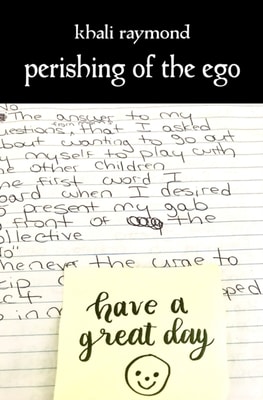 khali raymond
perishing of the ego
No
The answer to my
uestions, from that I asked
bout wanting to go out
y myself to play with
he other children
he first word I
oard when I desired
o present my gab
front of the
ollective
No"
henever the urge to
oped
in m
have a
great day